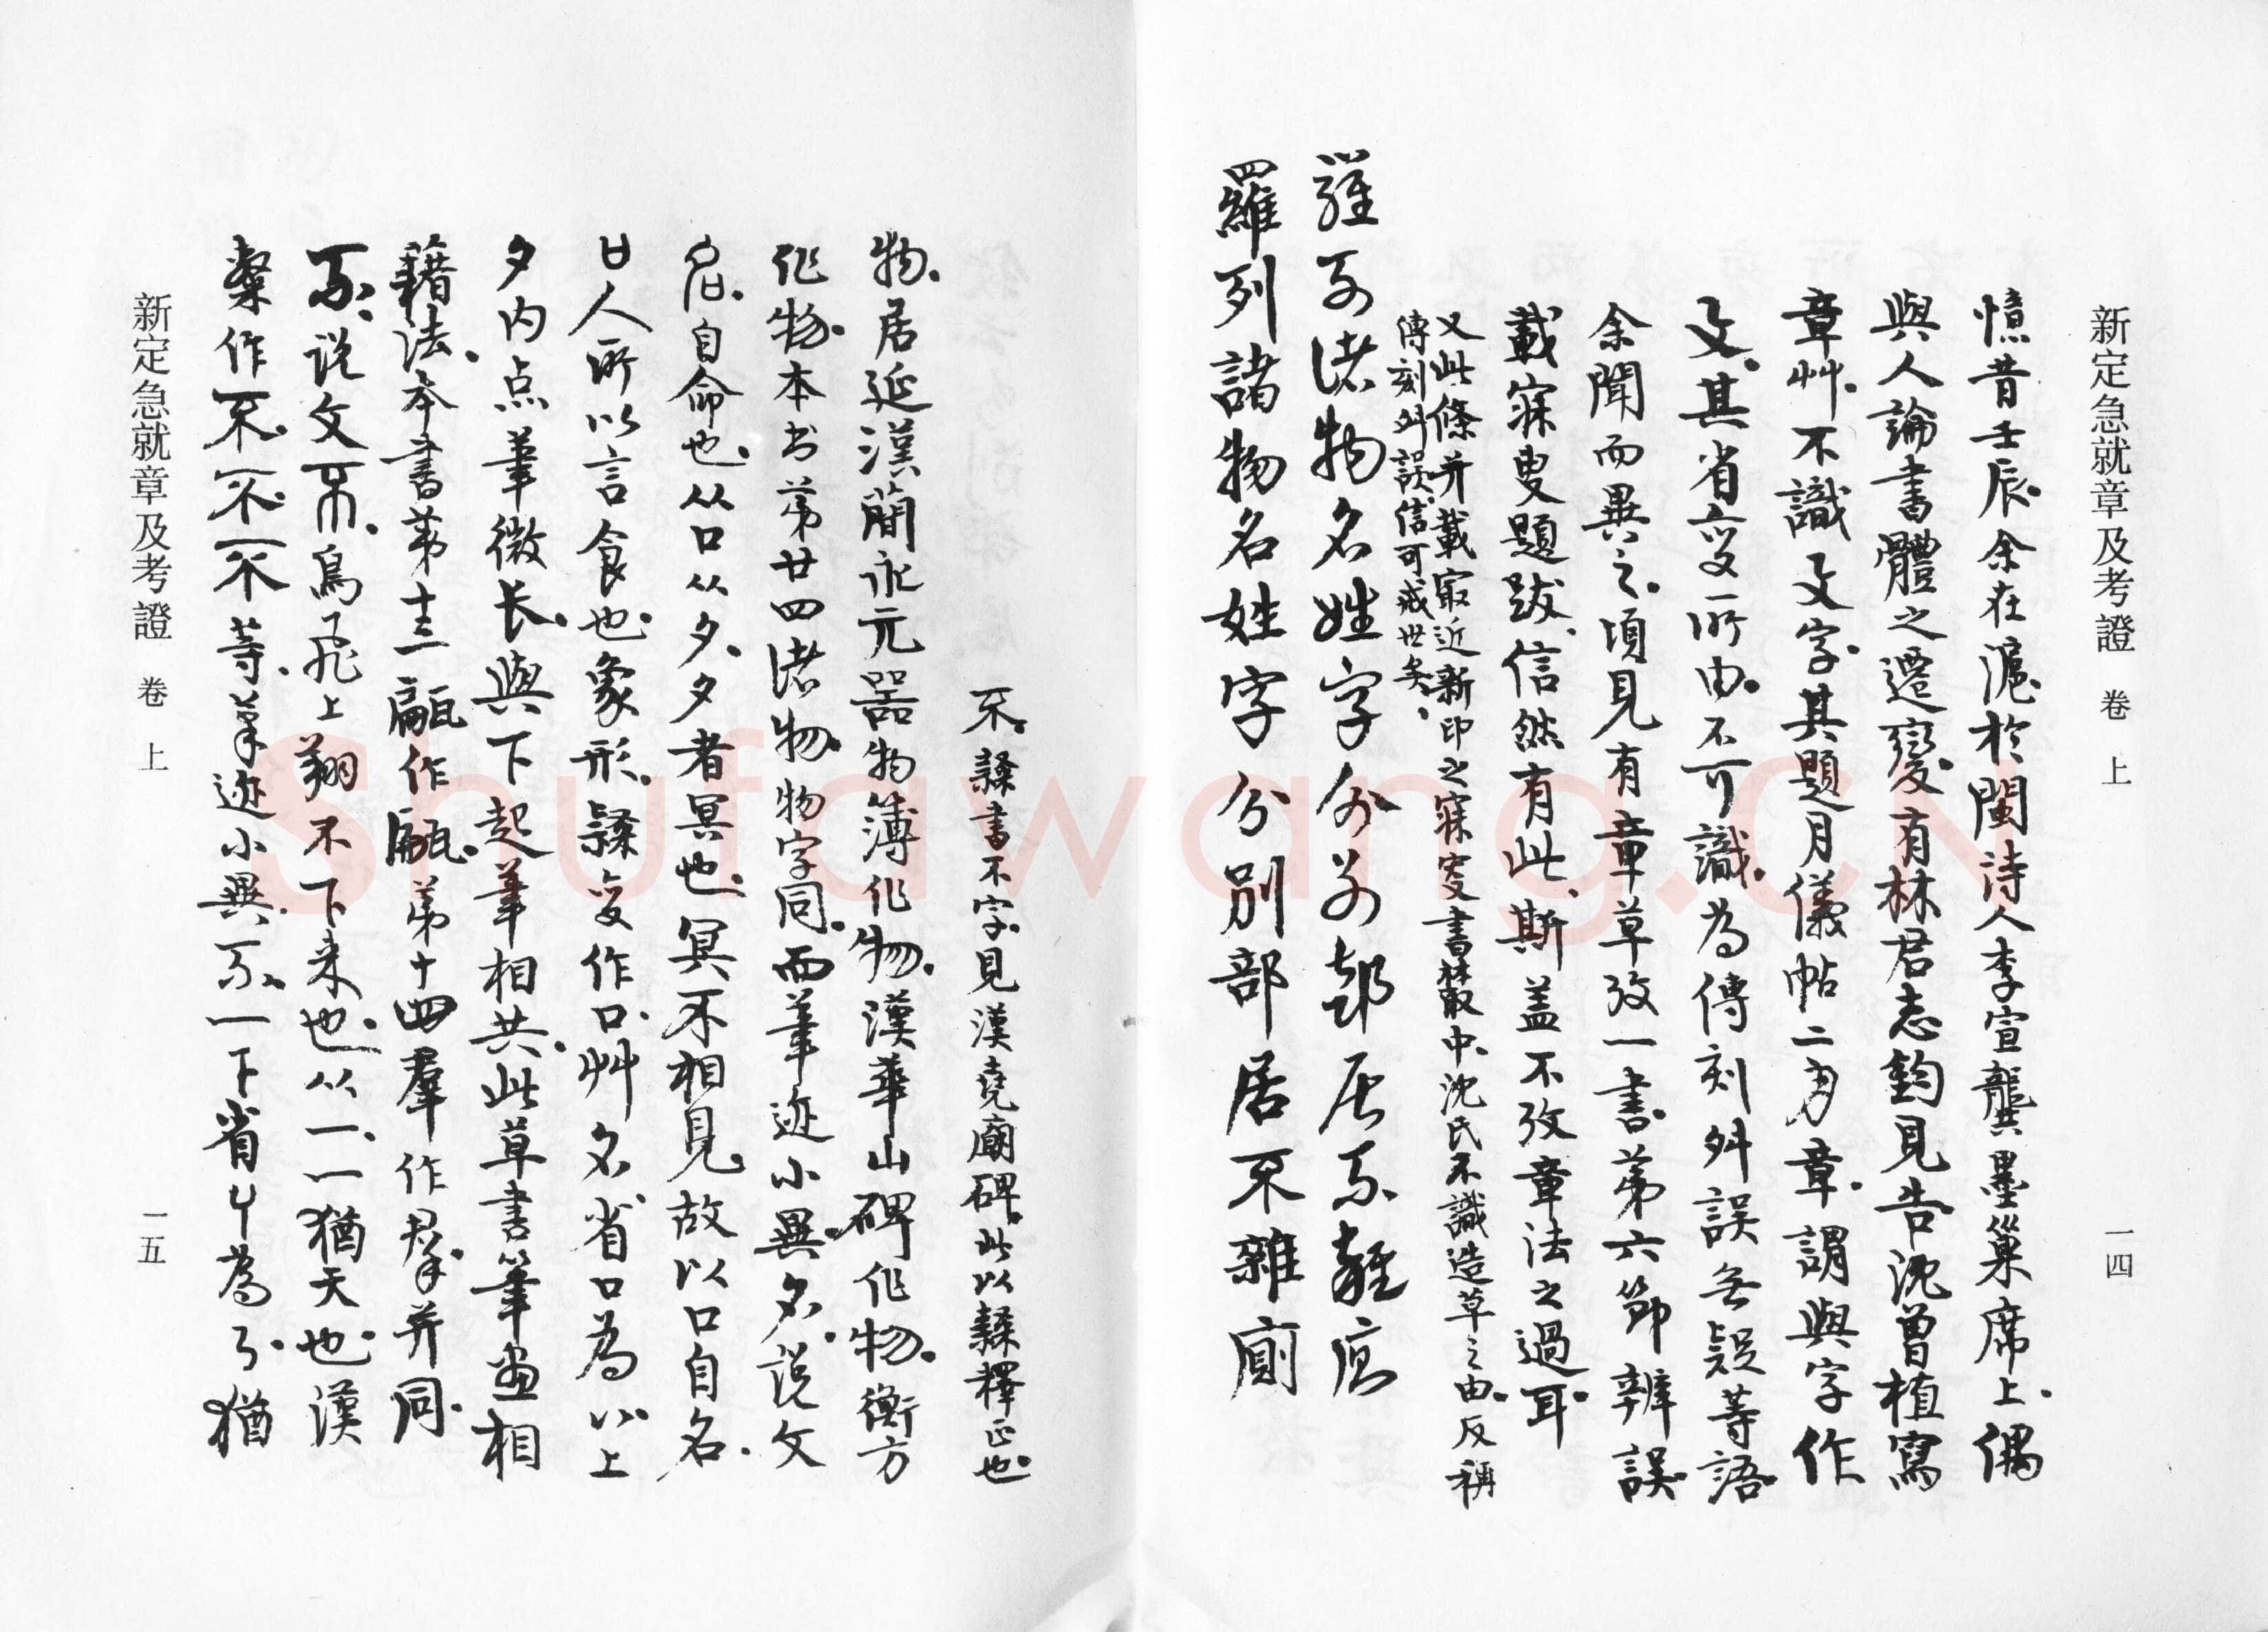 新定急就章及考證 卷 上 一四
憶昔壬辰余在滬於閩詩人李宣龔墨巢席上偶
與人論書體之遷變有林君志鈞見告沈曾植寫
章艸不識文字其題月儀帖二月章謂與字作
其省變所由不可識為傳刻舛誤無疑等語
余聞而異之頃見有章草攷一書第六節辨誤
載寐叟題跋信然有此斯蓋不攷章法之過耳
又此條并載最近新印之寐叟書叢中沈氏不識造草之由反稱
傳刻舛誤信可戒世矣
羅列諸物名姓字分別部居不雜廁
羅列諸物名姓字分別部居不雜廁
不隸書不字見漢堯廟碑此以隸釋正也
物居延漢簡永元器物簿作物漢華山碑作物衡方
作物本书第廿四諸物物字同而筆迹小異名說文
名自命也从口从夕夕者冥也冥不相見故以口自名
口人所以言食也象形隸变作口艸名省口為八上
夕內点筆微长與下起筆相共此草書筆畫相
藉法本書第十三甂作甂第十四羣作羣并同
不說文不鳥飛上翔不下来也从一一猶天也漢
槧作不不不等筆迹小異不一下省
新定急就章及考證 卷 上 一五